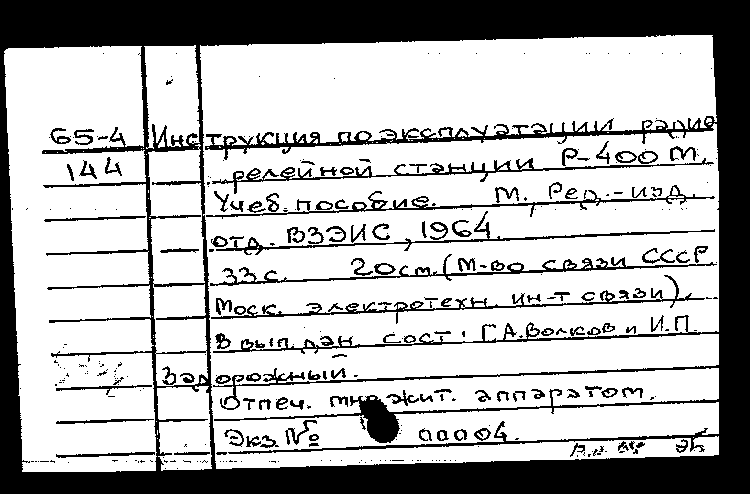 65-4 Инструкция по эксплуатации радио
144 релейной станции Р-400 М.
Учеб. пособие. М., Ред.-изд.
отд. ВЗЭИС, 1964.
33 с. 20 см. (М-во связи СССР
Моск. электротехн. ин-т связи).
В вып. дан. сост: Г.А. Волков и И.П.
Задорожный.
Отпеч. множит. аппаратом.
Экз. № 00004.